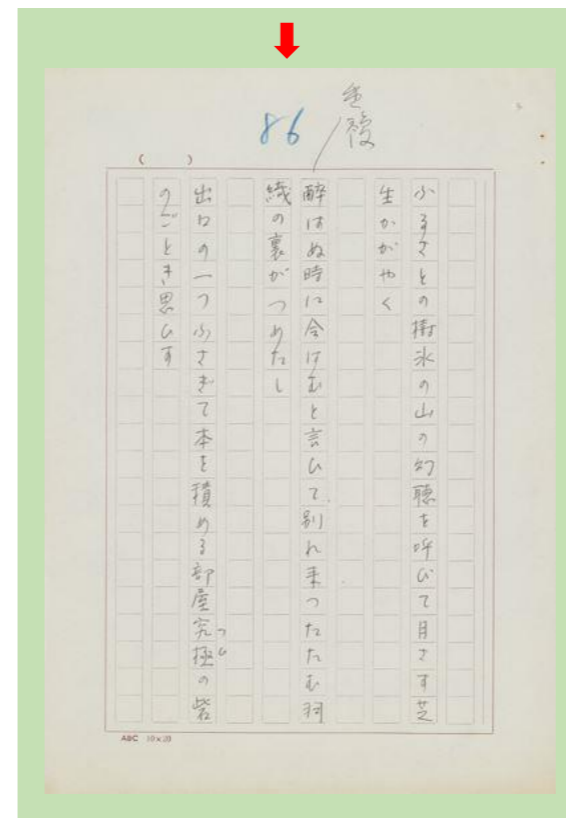 86
ふるさとの樹氷の山の幻聴を呼びて月さす芝
生かがやく
酔はぬ時に会はむと言ひて別れ来つたたむ羽
織の裏がつめたし
出口の一つふさぎて本を積める部屋究極の砦
つひ
のごとき思ひす
ABC 10×20